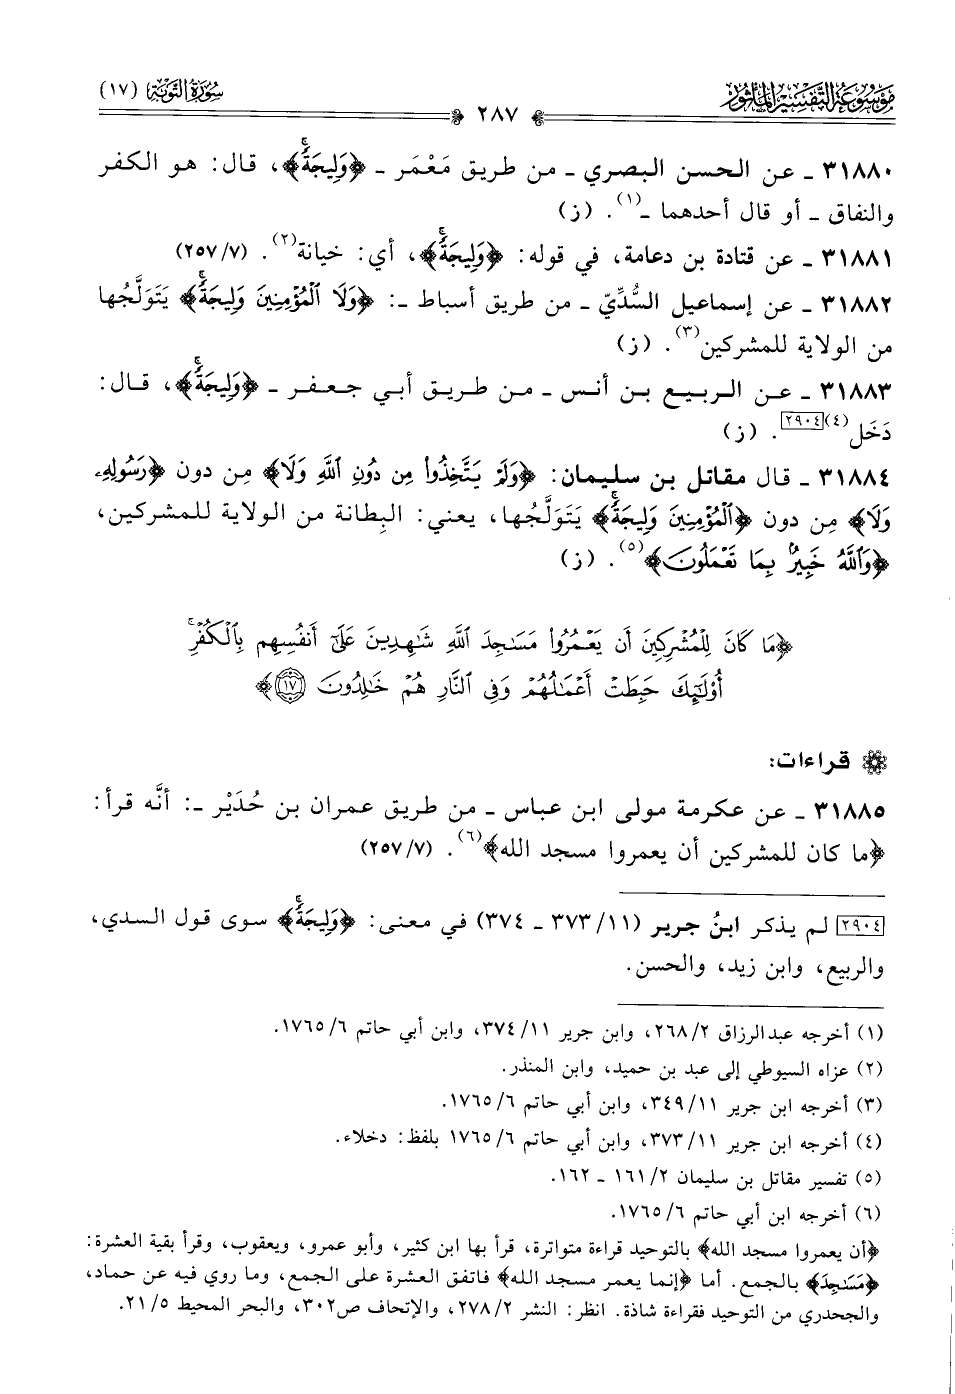 مَوْسُوعَة التَّفْسِيرِ المَأْثُور
سُورَةُ التَّوْبَةِ (١٧)
٢٨٧
٣١٨٨٠ ـ عن الحسن البصري ـ من طريق مَعْمَر ـ ﴿وَلِيجَةًۚ﴾، قال: هو الكفر
والنفاق ـ أو قال أحدهما ـ(١). (ز)
٣١٨٨١ ـ عن قتادة بن دعامة، في قوله: ﴿وَلِيجَةًۚ﴾، أي: خيانة(٢). (٧/ ٢٥٧)
٣١٨٨٢ ـ عن إسماعيل السُّدِّيّ ـ من طريق أسباط ـ: ﴿وَلَا ٱلْمُؤْمِنِينَ وَلِيجَةًۚ﴾ يَتَوَلَّجُها
من الولاية للمشركين(٣). (ز)
٣١٨٨٣ ـ عن الربيع بن أنس ـ من طريق أبي جعفر ـ ﴿وَلِيجَةًۚ﴾، قال:
دَخَل(٤)[٢٩٠٤]. (ز)
٣١٨٨٤ ـ قال مقاتل بن سليمان: ﴿وَلَمْ يَتَّخِذُوا۟ مِن دُونِ ٱللَّهِ وَلَا﴾ مِن دون ﴿رَسُولِهِۦ
وَلَا﴾ مِن دون ﴿ٱلْمُؤْمِنِينَ وَلِيجَةًۚ﴾ يَتَوَلَّجُها، يعني: البِطانة من الولاية للمشركين،
﴿وَٱللَّهُ خَبِيرٌۢ بِمَا تَعْمَلُونَ﴾(٥). (ز)
﴿مَا كَانَ لِلْمُشْرِكِينَ أَن يَعْمُرُوا۟ مَسَـٰجِدَ ٱللَّهِ شَـٰهِدِينَ عَلَىٰٓ أَنفُسِهِم بِٱلْكُفْرِۚ
أُو۟لَـٰٓئِكَ حَبِطَتْ أَعْمَـٰلُهُمْ وَفِى ٱلنَّارِ هُمْ خَـٰلِدُونَ ١٧﴾
قراءات:
٣١٨٨٥ ـ عن عكرمة مولى ابن عباس ـ من طريق عمران بن حُدَيْر ـ: أنَّه قرأ:
﴿ما كان للمشركين أن يعمروا مسجد الله﴾(٦). (٧/ ٢٥٧)
[٢٩٠٤] لم يذكر ابنُ جرير (١١/ ٣٧٣ ـ ٣٧٤) في معنى: ﴿وَلِيجَةًۚ﴾ سوى قول السدي،
والربيع، وابن زيد، والحسن.
(١) أخرجه عبدالرزاق ٢/ ٢٦٨، وابن جرير ١١/ ٣٧٤، وابن أبي حاتم ٦/ ١٧٦٥.
(٢) عزاه السيوطي إلى عبد بن حميد، وابن المنذر.
(٣) أخرجه ابن جرير ١١/ ٣٤٩، وابن أبي حاتم ٦/ ١٧٦٥.
(٤) أخرجه ابن جرير ١١/ ٣٧٣، وابن أبي حاتم ٦/ ١٧٦٥ بلفظ: دخلاء.
(٥) تفسير مقاتل بن سليمان ٢/ ١٦١ ـ ١٦٢.
(٦) أخرجه ابن أبي حاتم ٦/ ١٧٦٥.
﴿أن يعمروا مسجد الله﴾ بالتوحيد قراءة متواترة، قرأ بها ابن كثير، وأبو عمرو، ويعقوب، وقرأ بقية العشرة:
﴿مَسَـٰجِدَ﴾ بالجمع. أما ﴿إنما يعمر مسجد الله﴾ فاتفق العشرة على الجمع، وما روي فيه عن حماد،
والجحدري من التوحيد فقراءة شاذة. انظر: النشر ٢/ ٢٧٨، والإتحاف ص٣٠٢، والبحر المحيط ٥/ ٢١.